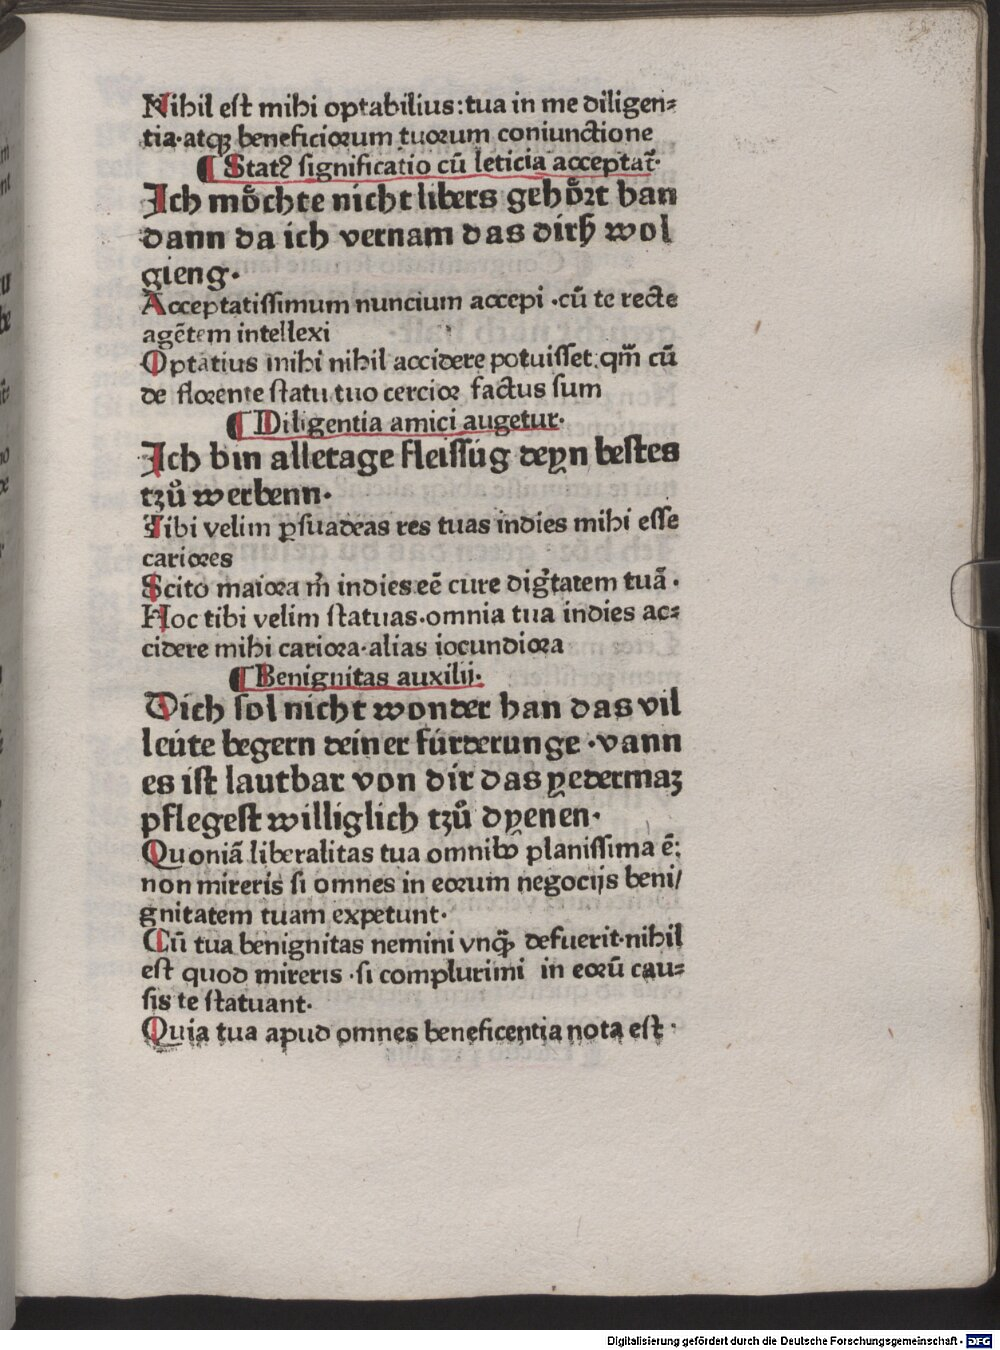 Nihil est mihi optabilius: tua in me diligen⸗
tia·atqꝫ beneficioꝛum tuoꝛum coniunctione
¶ Statꝰ significatio cū leticia acceptat̄·
Ich moͤchte nicht libers gehoͤꝛt han
dann da ich vernam das dirh wol
gieng·
Acceptatissimum nuncium accepi ·cū te recte
agētem intellexi
Optatius mihi nihil accidere potuisset.qm̄ cū
de floꝛente statu tuo cercioꝛ factus sum
¶ Diligentia amici augetur·
Ich bin alletage fleissüg deyn bestes
tzů werbenn·
Tibi velim ꝑsuadeas res tuas indies mihi esse
carioꝛes
Scito maioꝛa m̄ indies eē cure diḡtatem tuā·
Hoc tibi velim statuas·omnia tua indies ac⸗
cidere mihi carioꝛa·alias iocundioꝛa
¶ Benignitas auxilij·
Dich sol nicht wonder han das vil
leüte begern deiner fürderunge ·vann
es ist lautbar von dir das yedermaꝫ
pflegest williglich tzů dyenen·
Quoniā liberalitas tua omnibꝰ planissima ē:
non mireris si omnes in eoꝛum negocijs beni/
gnitatem tuam expetunt·
Cū tua benignitas nemini vnqꝫ̄ defuerit·nihil
est quod mireris ·si complurimi in eoꝛū cau⸗
sis te statuant·
Quia tua apud omnes beneficentia nota est·
Digitalisierung gefördert durch die Deutsche Forschungsgemeinschaft · DFG